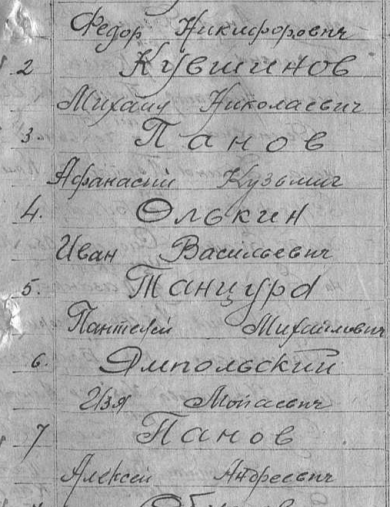 Федор Никифорович
2 Кувшинов
Михаил Николаевич
3. Панов
Афанасий Кузьмич
4. Олькин
Иван Васильевич
5. Танцура
Пантелей Михайлович
6. Ямпольский
Изя Мойсевич
7 Панов
Алексей Андреевич